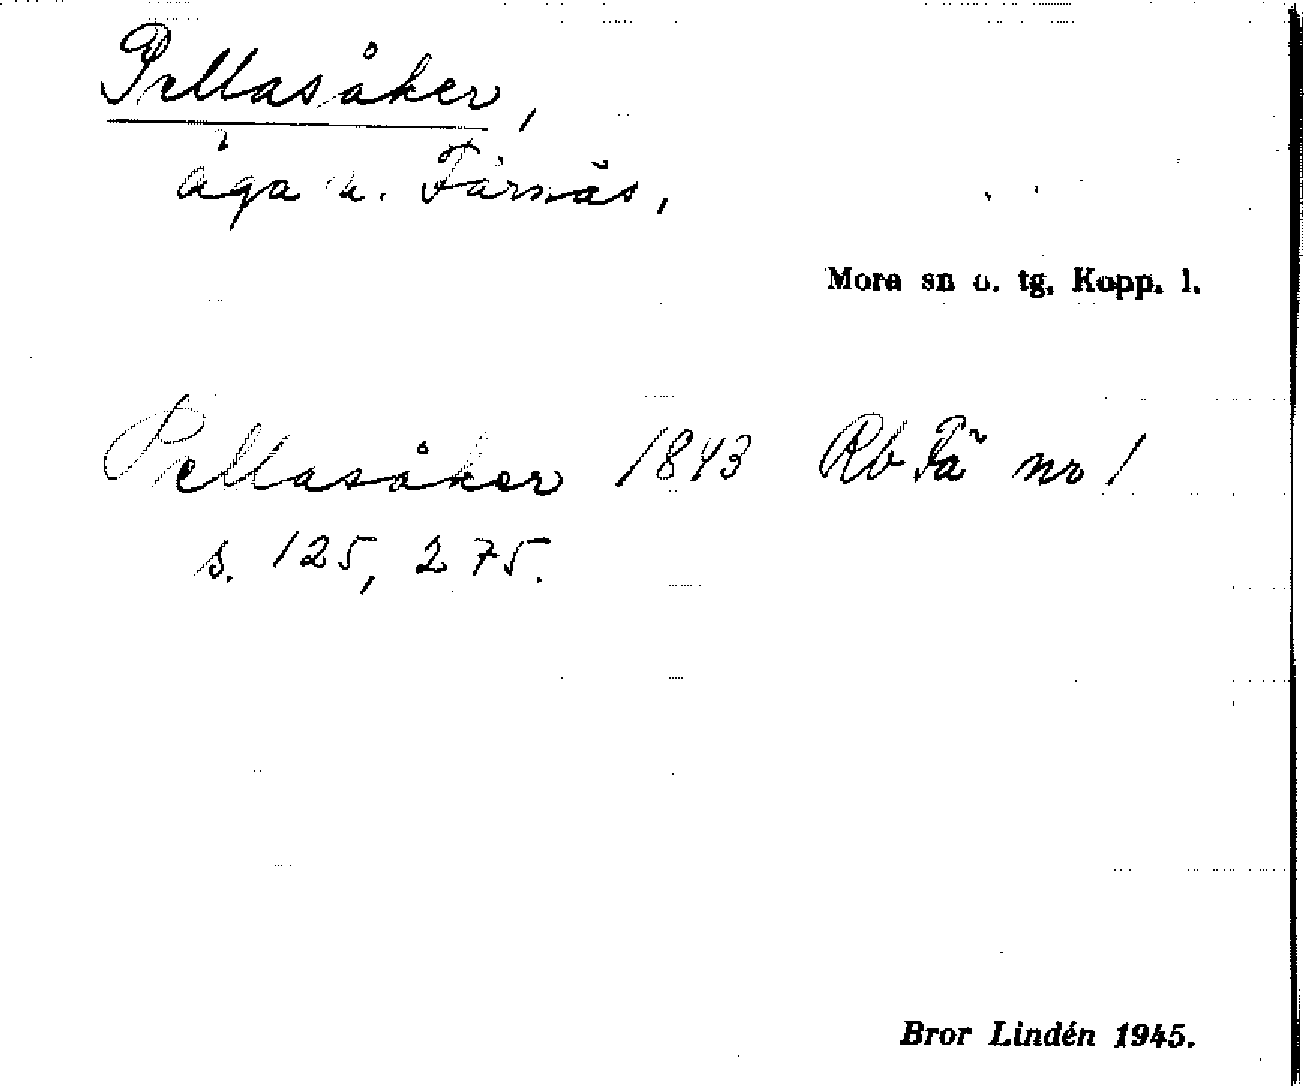 Pellasåker,
åga u. Färnäs,
Mora sn o. tg. Kopp. l.
Pellasåker 1843 Rb Fä no 1
s. 125, 275.
Bror Lindén 1945.